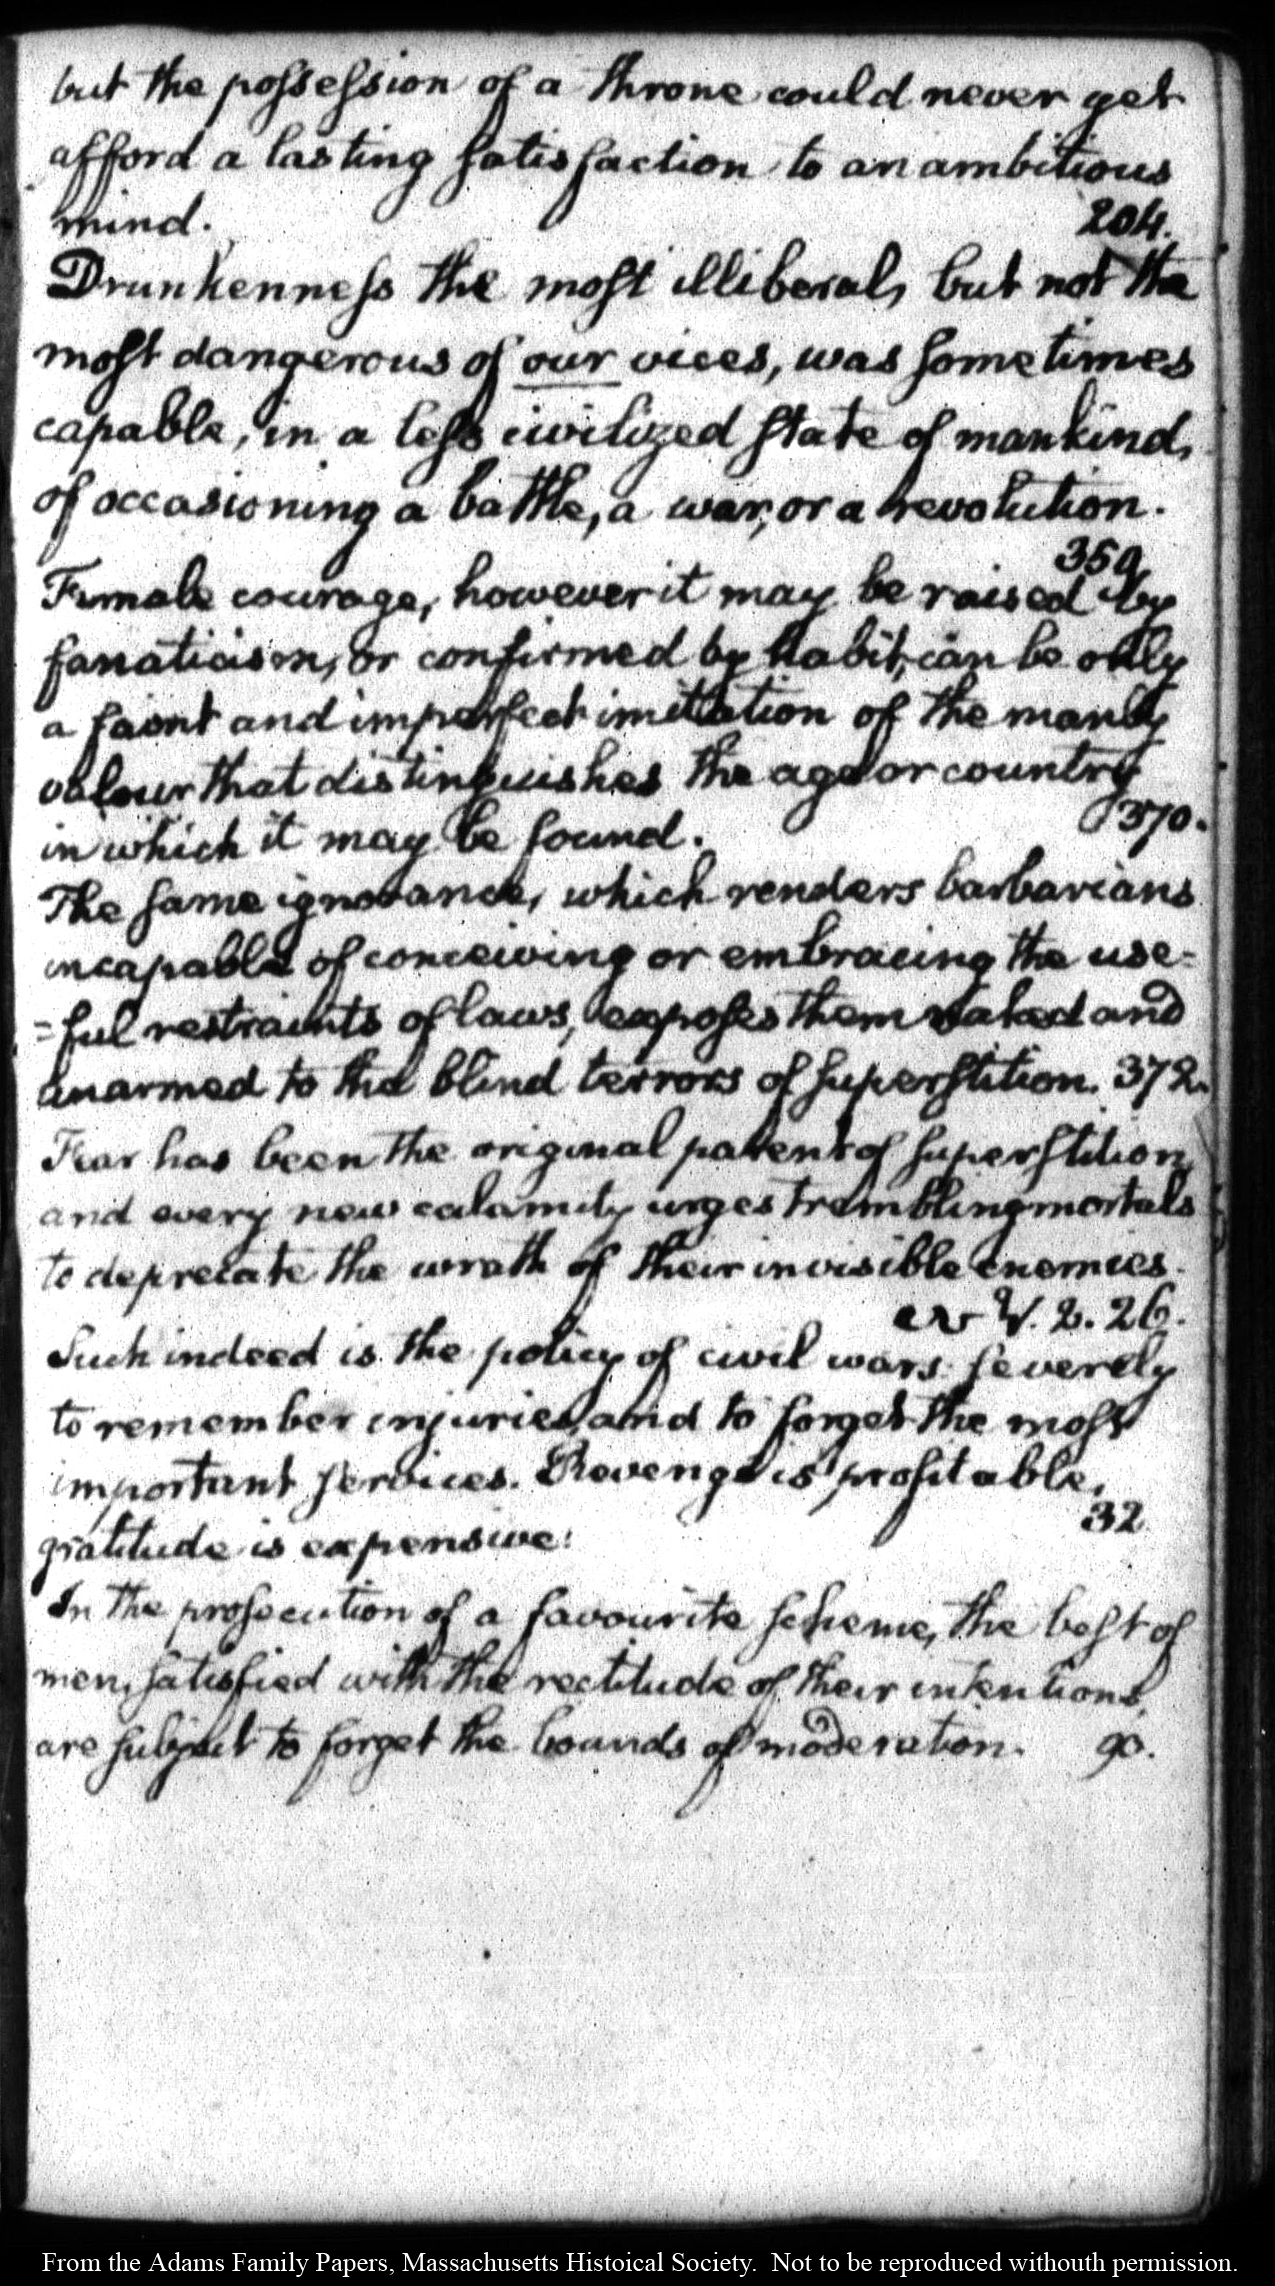 but the possession of a throne could never yet
afford a lasting satisfaction to an ambitious
mind. 204.
Drunkenness the most illiberal, but not the
most dangerous of our vices, was sometimes
capable, in a less civilized state of mankind,
of occasioning a battle, a war, or a revolution.
359
Female courage, however it may be raised by
fanaticism, or confirmed by habit, can be only
a faint and imperfect imitation of the manly
valour that distinguishes the age or country
in which it may be found. 370.
The same ignorance, which renders barbarians
incapable of conceiving or embracing the use=
=ful restraints of laws, exposes them naked and
unarmed to the blind terrors of superstition. 372.
Fear has been the original parent of superstition,
and every new calamity urges trembling mortals
to deprecate the wrath of their invisible enemies.
V. 2. 26.
Such indeed is the policy of civil wars severely
to remember injuries, and to forget the most
important services. Revenge is profitable,
32
gratitude is expensive:
In the prosecution of a favourite scheme, the best of
men, satisfied with the rectitude of their intentions,
are subject to forget the bounds of moderation. 90.
From the Adams Family Papers, Massachusetts Histoical Society. Not to be reproduced withouth permission.